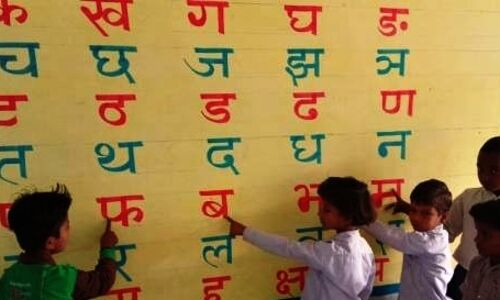 क ख ग घ ङ
च छ ज झ ञ
ट ठ ड ढ ण
त थ द ध न
फ ब भ म
र ल
ह क्ष